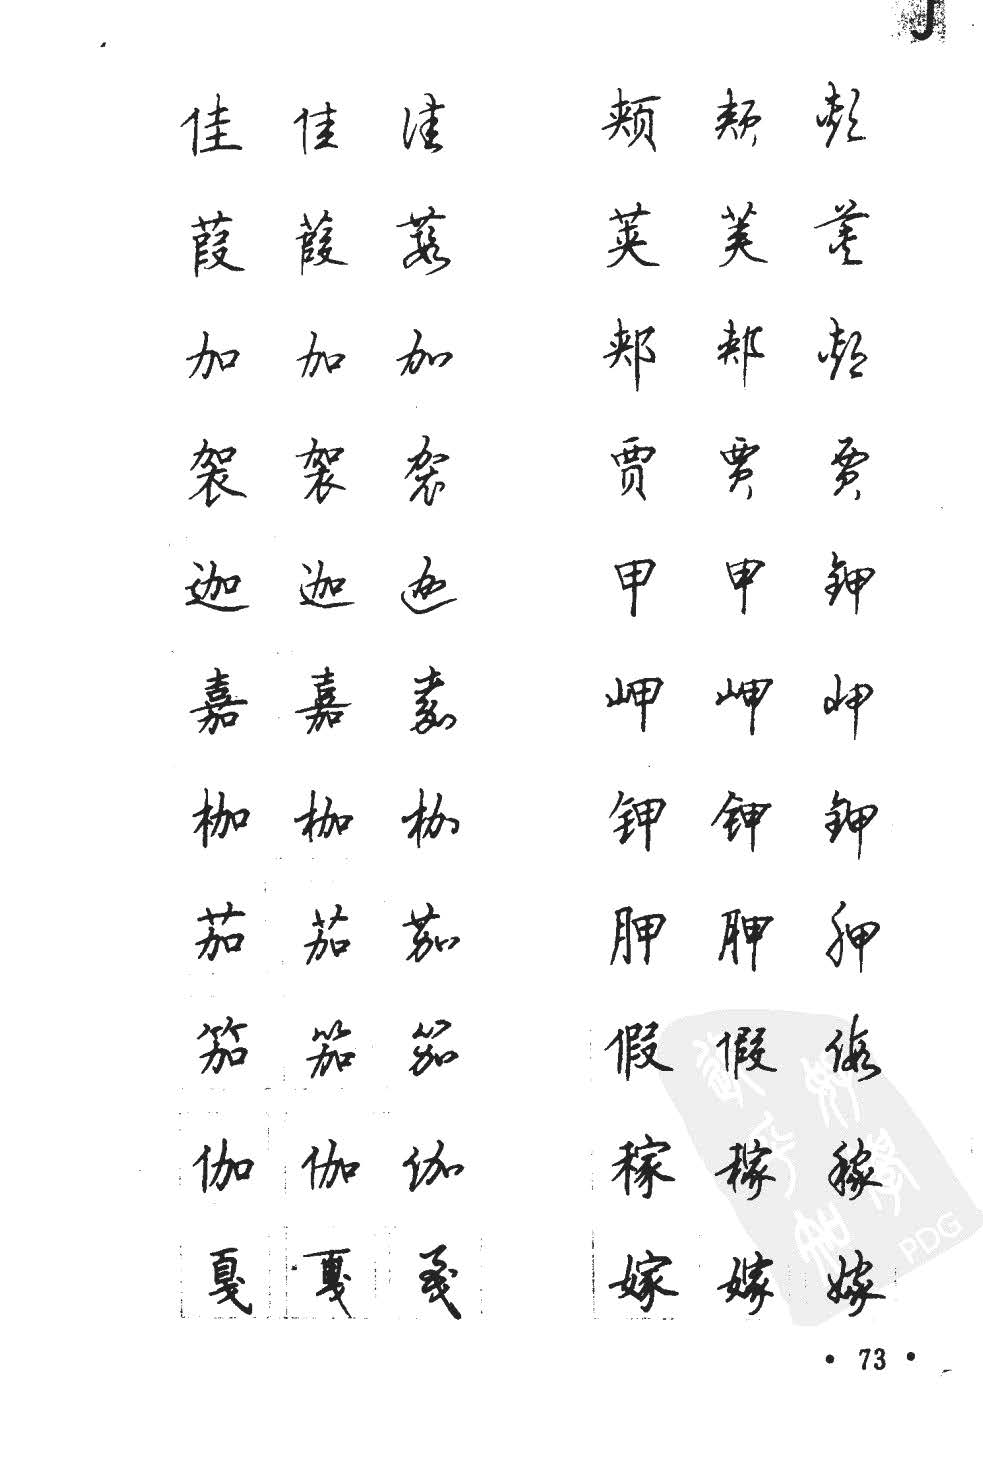 J
佳 佳 佳 颊 颊 颊
葭 葭 葭 荚 荚 荚
加 加 加 郏 郏 郏
袈 袈 袈 贾 贾 贾
迦 迦 迦 甲 甲 钾
嘉 嘉 嘉 岬 岬 岬
枷 枷 枷 钾 钾 钾
茄 茄 茄 胛 胛 胛
笳 笳 笳 假 假 假
伽 伽 伽 稼 稼 稼
戛 戛 戛 嫁 嫁 嫁
PDG
• 73 •